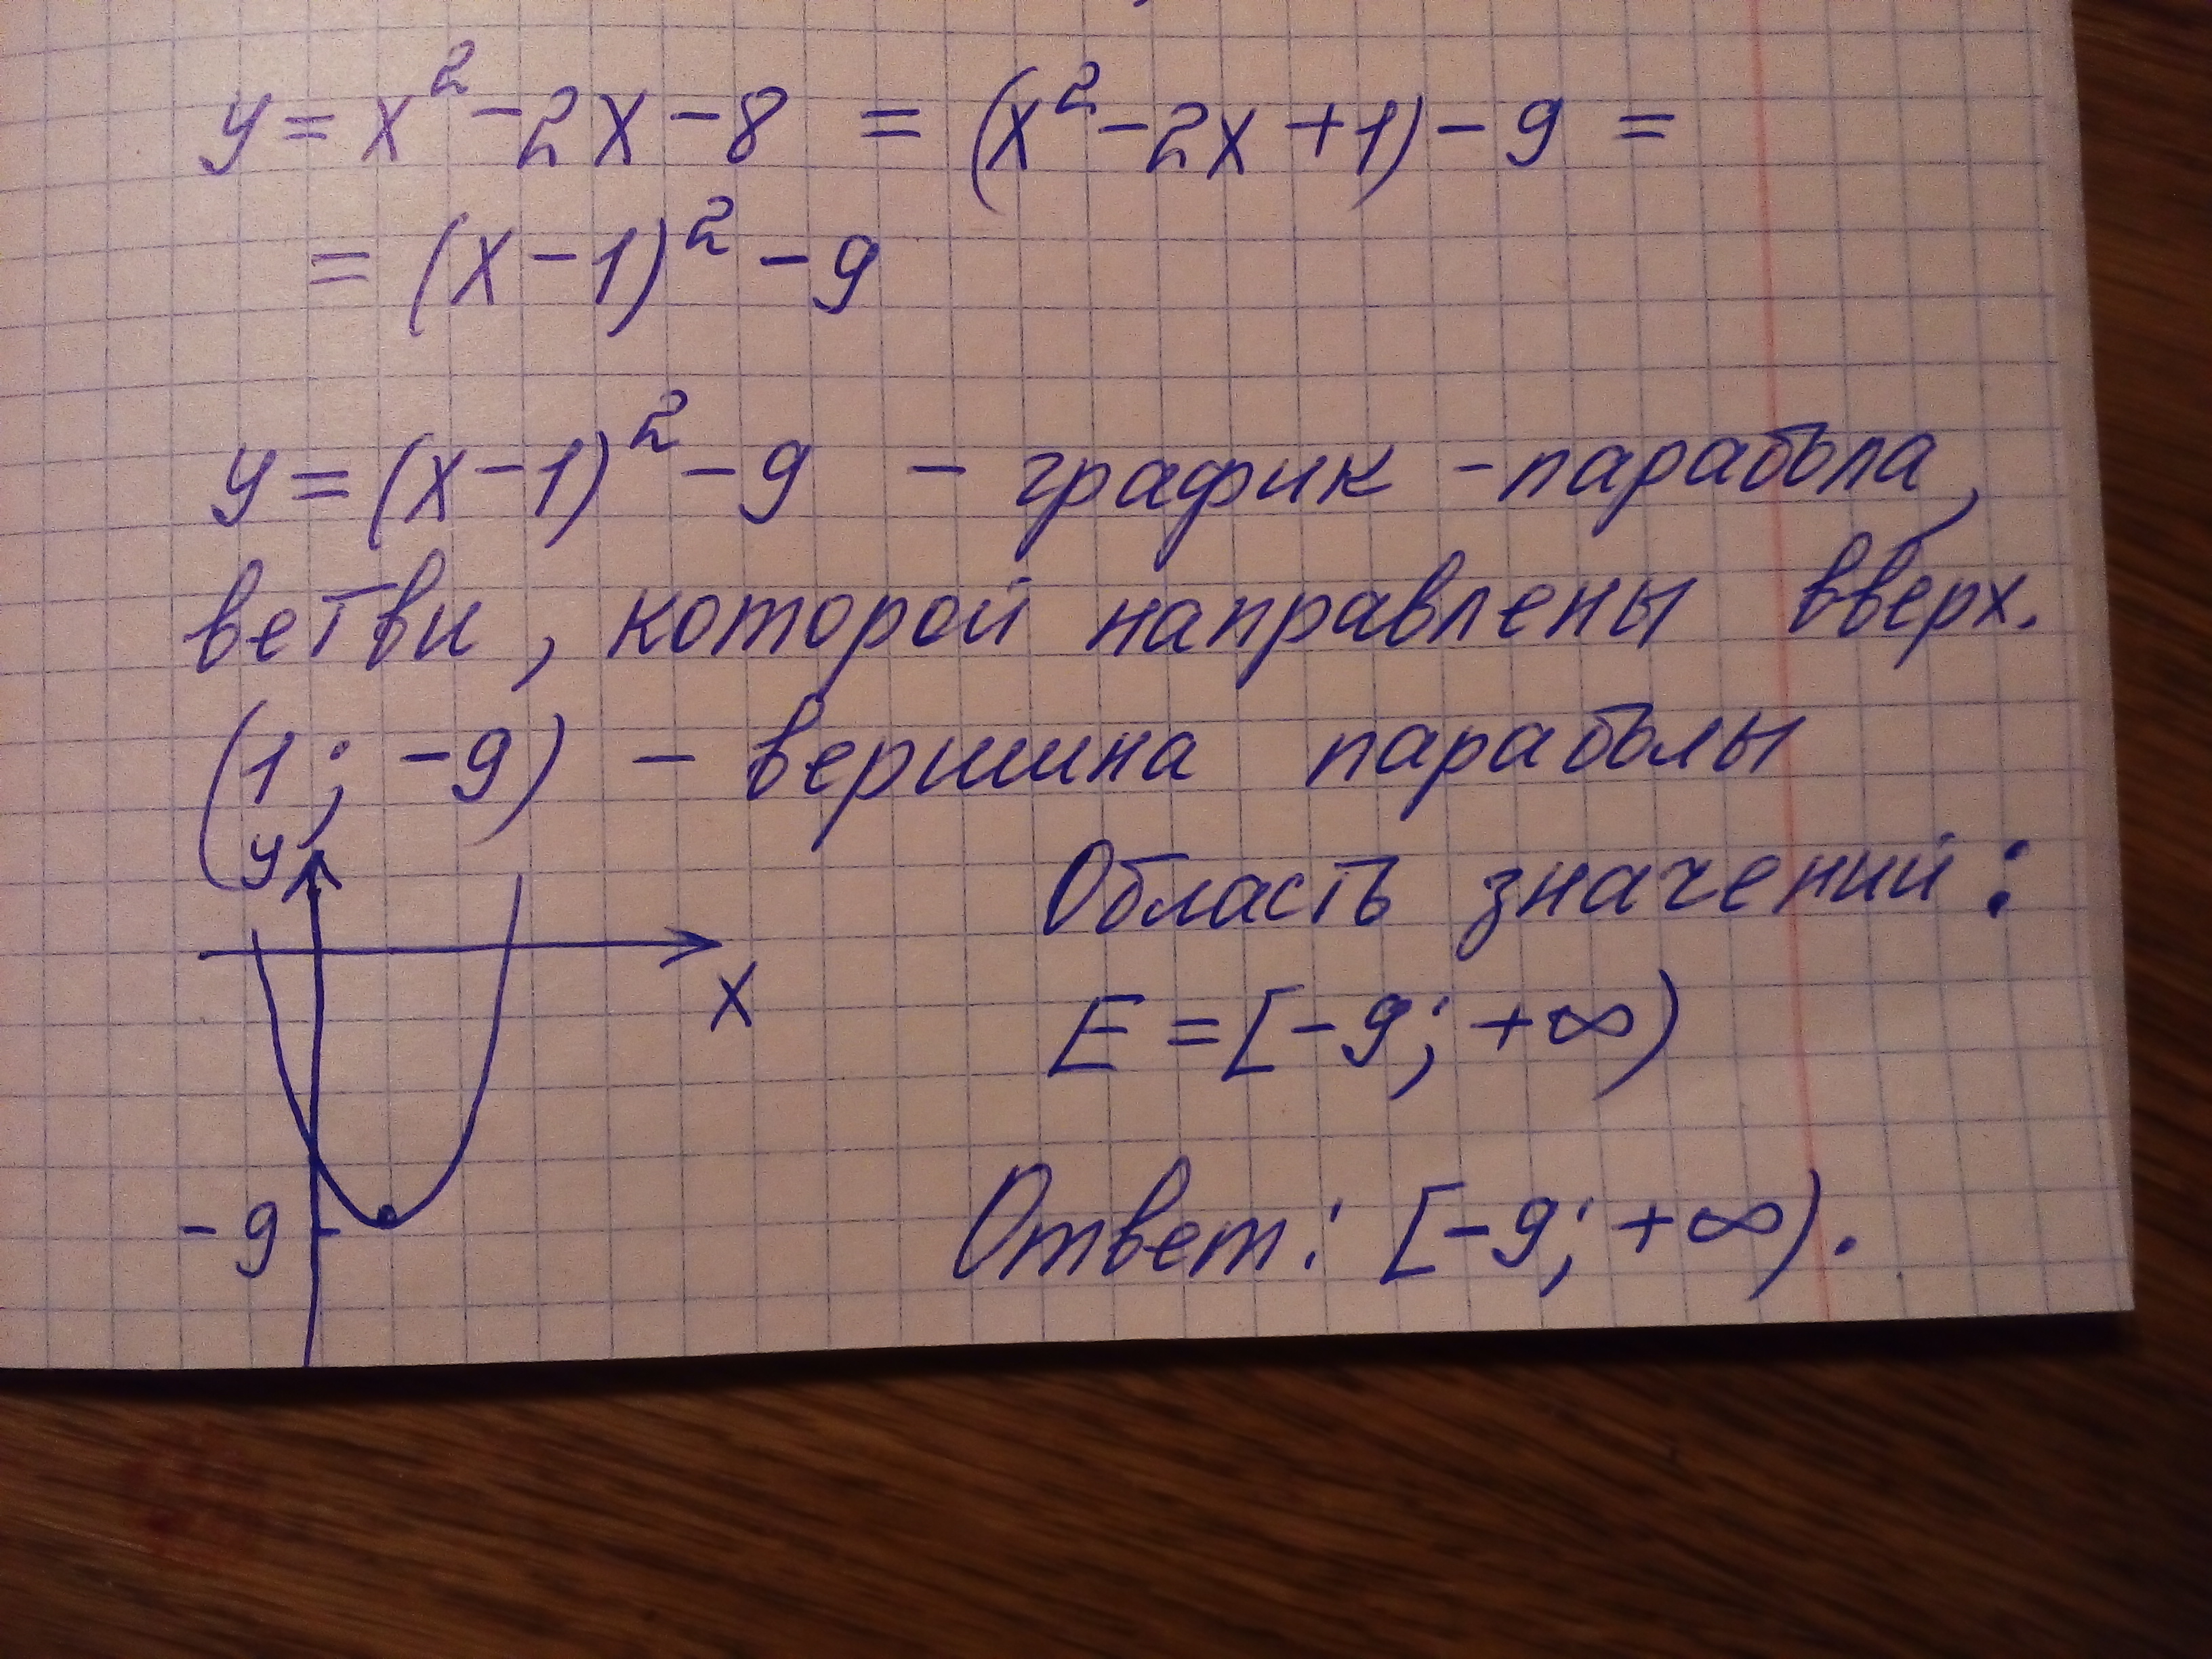 y = x² - 2x - 8 = (x² - 2x + 1) - 9 =
= (x - 1)² - 9
y = (x - 1)² - 9 - график - парабола,
ветви, которой направлены вверх.
(1; -9) - вершина параболы
y
Область значений:
x
E = [-9; +∞)
-9
Ответ: [-9; +∞).